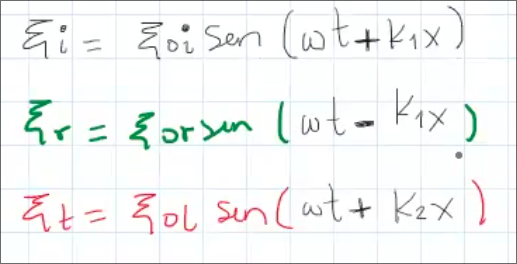 ξi = ξoi sen (ωt + k₁x)
ξr = ξor sen (ωt - k₁x)
ξt = ξol sen (ωt + k₂x)